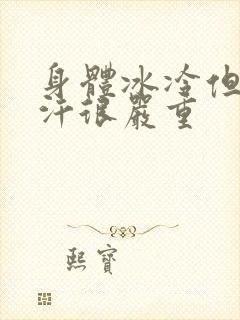 身體冰冷但
汗很嚴重
熙寶